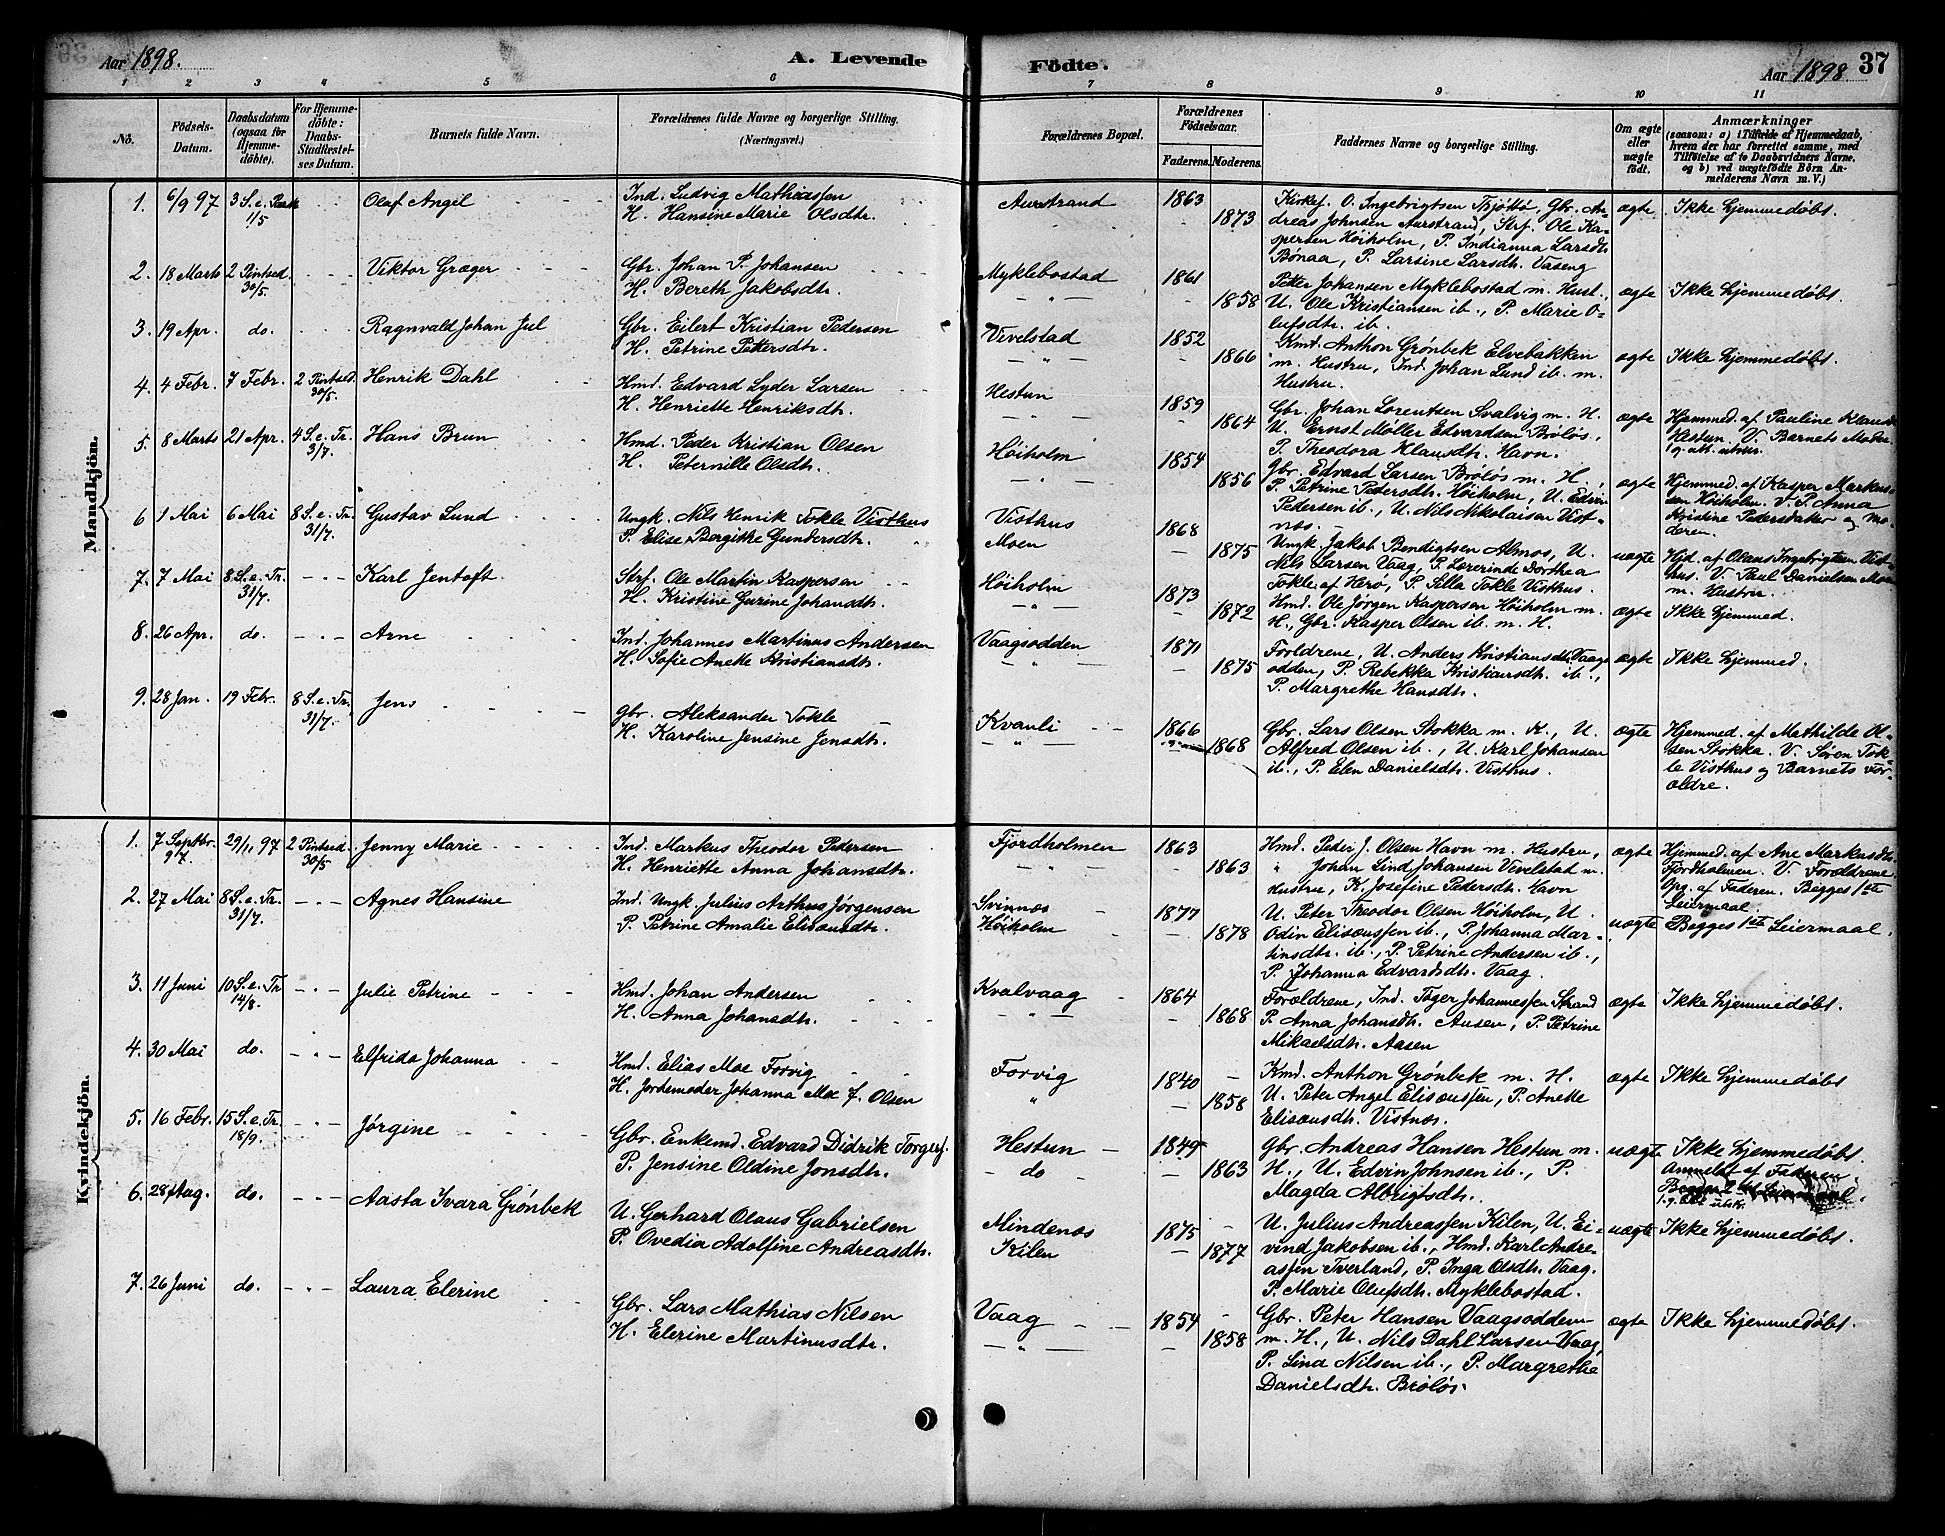 Aar 1898.
A. Levende
1 2 3 4 5 6
Nô.
Födsels-Datum.
Daabsdatum (ogsaa för Hjemme-döbte).
For Hjemme-döbte: Daabs-Stadfæstel-ses Datum.
Barnets fulde Navn.
Forældrenes fulde Navne og borgerlige Stilling.
(Næringsvei.)
Mandkjön.
1. 6/9 97 3 S. e. Paask Olaf Angel Ind. Ludvig Mathiassen
1/5 H. Hansine Marie Olsdtr.
2. 18 Marts 2 Pintsed. Viktor Græger Gbr. Johan P. Johansen
30/5. H. Bereth Jakobsdtr.
3. 19 Apr. do. Ragnvald Johan Jul Gbr. Eilert Kristian Pedersen
H. Petrine Pettersdtr.
4. 4 Febr. 7 Febr. 2 Pintsed. Henrik Dahl Hmd. Edvard Lyder Larsen
30/5. H. Henriette Henriksdtr.
5. 8 Marts 21 Apr. 4 S. e. Tr. Hans Brun Hmd. Peder Kristian Olsen
3/7. H. Peternille Olsdtr.
6 1 Mai 6 Mai 8 S. e. Tr. Gustav Lund Ungk. Nils Henrik Tokle Visthus
31/7. P. Elise Bergitte Gundersdtr.
7. 7 Mai 8 S. e. Tr. Karl Jentoft Strf. Ole Martin Kaspersen
31/7. H. Kristine Gurine Johansdtr.
8. 26 Apr. do. Arne Ind. Johannes Martinus Andersen
H. Sofie Anette Kristiansdtr.
9. 28 Jan. 19 Febr. 8 S. e. Tr. Jens Gbr. Aleksander Tokle
31/7. H. Karoline Jensine Jensdtr.
Kvindekjön.
1. 7 Septbr. 97 29/11 97 2 Pintsed. Jenny Marie Ind. Markus Theodor Pedersen
30/5 H. Henriette Anna Johansdtr.
2. 27 Mai 8 S. e. Tr. Agnes Hansine Ind. Ungk. Julius Arthur Jørgensen
31/7. P. Petrine Amalie Elisæusdtr.
3. 11 Juni 10 S. e. Tr. Julie Petrine Hmd. Johan Andersen
14/8. H. Anna Johansdtr.
4. 30 Mai do. Elfrida Johanna Hmd. Elias Moe Forvig
H. Jordemoder Johanna Moe f. Olsen
5. 16 Febr. 15 S. e. Tr. Jørgine Gbr. Enkemd. Edvard Didrik Torgers.
18/9. P. Jensine Oldine Jonsdtr.
6. 28 Aug. do. Aasta Ivara Grønbek U. Gerhard Olaus Gabrielsen
P. Ovedia Adolfine Andreasdtr.
7. 26 Juni do. Laura Elerine Gbr. Lars Mathias Nilsen
H. Elerine Martinusdtr.
Födte.
Aar 1898 37
7 8 9 10 11
Forældrenes Bopæl.
Forældrenes Födselsaar.
Faderens. Moderens.
Faddernes Navne og borgerlige Stilling.
Om ægte eller uægte födt.
Anmærkninger
(saasom: a) i Tilfælde af Hjemmedaab, hvem der har forrettet samme, med Tilföielse af to Daabsvidners Navne. og b) ved uægtefödte Börn An-melderens Navn m. V.)
Aurstrand 1863 Kirkes. O. Ingebrigtsen Thjøttø, Gbr. An- ægte Ikke hjemmedøbt.
1873 dreas Johnsen Aurstrand, Strf. Ole Ka-
spersen Høiholm, P. Indianna Larsdtr.
Bønaa, P. Larsine Larsdtr. Vaseng
Myklebostad 1861 Petter Johansen Myklebostad m. Hust., ægte Ikke hjemmedøbt.
1858 U. Ole Kristiansen ib., P. Marie O-
lufsdtr. ib.
Vevelstad 1852 Kmd. Anthon Grønbek Elvebakken ægte Ikke hjemmedøbt.
1866 m. Hustru, Ind. Johan Lund ib. m.
Hustru.
Hestun 1859 Gbr. Johan Lorentsen Svalvig m. H. ægte Hjemmed. af Pauline Klausd.
1864 U. Ernst Møller Edvardsen Brøløs, Hestun. V. Barnets Moder
P. Theodora Klausdtr. Havn.
Høiholm 1854 Gbr. Edvard Larsen Brøløs m. H., ægte Hjemmed. af Kasper Markus-
1856 P. Petrine Pedersdtr. Høiholm, U. Edvin sen Høiholm. V. P. Anna
Pedersen ib., U. Nils Nikolaisen Vist- Kristine Pedersdatter og Mo-
næs. deren.
Visthus 1868 Ungk. Jakob Bendigtsen Almos, U. uægte Hjd. af Olaus Ingebrigtsen Vist-
Moen 1875 Nils Larsen Vaag, P. Lærerinde Dorthea hus. V. Paul Danielsen Moen
Tokle af Herø, P. Silla Tokle Visthus. m. Hustru.
Høiholm 1873 Hmd. Ole Jørgen Kaspersen Høiholm m. ægte Ikke hjemmed.
1872 H., Gbr. Kasper Olsen ib. m. H.
Vaagsodden 1871 Forældrene, U. Anders Kristiansdtr. Vaags- ægte Ikke hjemmed.
1875 odden, P. Rebekka Kristiansdtr. ib.,
P. Margrethe Hansdtr.
Kvanli 1866 Gbr. Lars Olsen Stokka m. K., U. ægte Hjemmed. af Mathilde Ol-
1868 Alfred Olsen ib., U. Karl Johansen sen Stokka. V. Søren Tok-
ib., P. Elen Danielsdtr. Visthus. le Visthus og Barnets For-
ældre.
Fjordholmen 1863 Hmd. Peter J. Olsen Havn m. Hustru, ægte Hjemmed. af Ane Markusdtr.
1863 " Johan Lind Johansen Vevelstad m. Fjordholmen. V. Forældrene.
Hustru, K. Josefine Pedersdtr. Havn Opg. af Faderen. Begges 1ste
Leiermaal.
Svinnæs 1877 U. Peter Theodor Olsen Høiholm, U. uægte Begges 1ste Leiermaal.
Høiholm 1878 Odin Elisæussen ib., P. Johanna Mar-
tinsdtr. ib., P. Petrine Andersen ib.,
P. Johanna Edvardsdtr. Vaag.
Kvalvaag 1864 Forældrene, Ind. Tøger Johannessen Strand ægte Ikke hjemmedøbt.
1868 P. Anna Johansdtr. Aasen, P. Petrine
Mikaelsdtr. Aasen
Forvig 1840 Kmd. Anthon Grønbek m. H. ægte Ikke hjemmedøbt
1858 U. Peter Angel Elisæussen, P. Anette
Elisæusdtr. Vistnæs.
Hestun 1849 Gbr. Andreas Hansen Hestun m. uægte Ikke hjemmedøbt.
do 1863 H., U. Edvin Johnsen ib., P. Anmeldt af Faderen
Magda Albrigtsdtr.
Mindenæs 1875 U. Julius Andreassen Kilen, U. Ei- uægte Ikke hjemmedøbt.
Kilen 1877 vind Jakobsen ib., Hmd. Karl Andre-
assen Tverland, P. Inga Olsdtr. Vaag.
P. Marie Olufsdtr. Myklebostad.
Vaag 1854 Gbr. Peter Hansen Vaagsodden ægte Ikke hjemmedøbt.
1858 m. H., U. Nils Dahl Larsen Vaag,
P. Lina Nilsen ib., P. Margrethe
Danielsdtr. Brøløs.